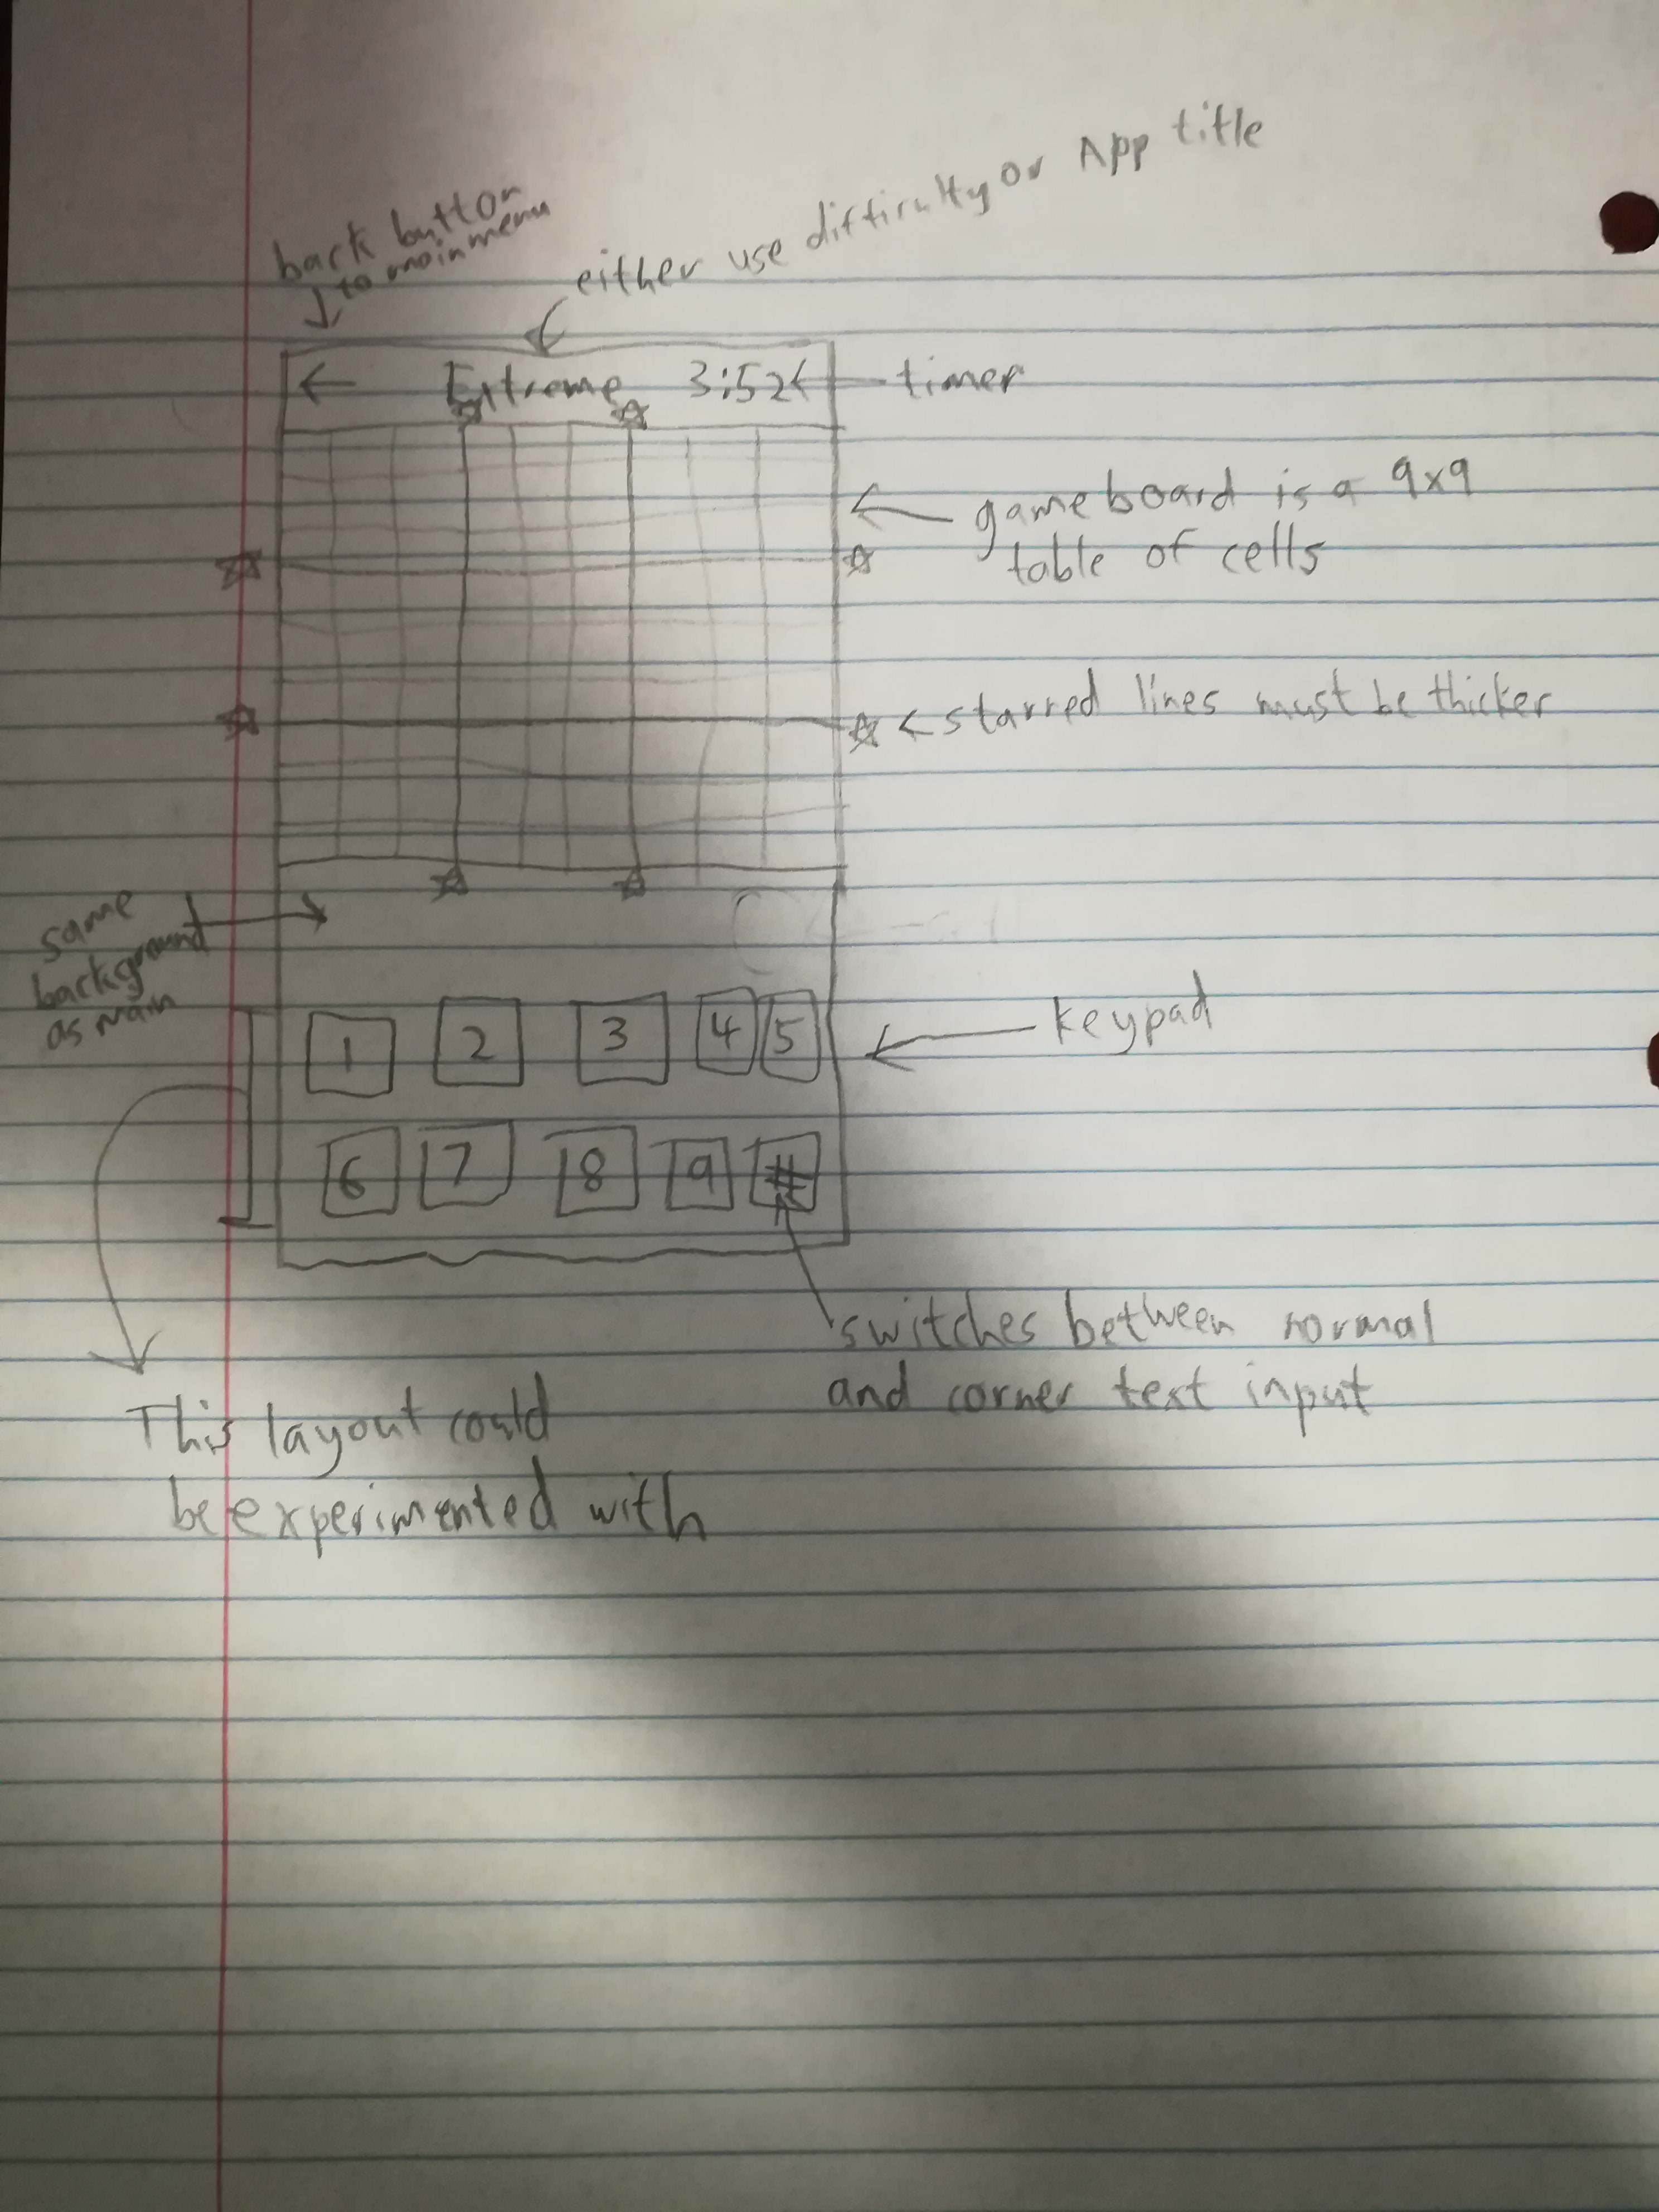 back button
to main menu
either use difficulty or App title
← Extreme 3:52
timer
gameboard is a 9x9
table of cells
starred lines must be thicker
same
background
as main
1 2 3 4 5
keypad
6 7 8 9 #
switches between normal
and corner text input
This layout could
be experimented with